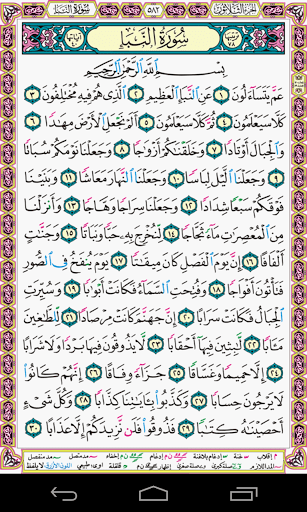 الجزء الثلاثون ٥٨٢ سورة النبإ
سُورَةُ النَّبَإِ
بِسْمِ ٱللَّهِ ٱلرَّحْمَٰنِ ٱلرَّحِيمِ
عَمَّ يَتَسَآءَلُونَ ١ عَنِ ٱلنَّبَإِ ٱلْعَظِيمِ ٢ ٱلَّذِى هُمْ فِيهِ مُخْتَلِفُونَ ٣
كَلَّا سَيَعْلَمُونَ ٤ ثُمَّ كَلَّا سَيَعْلَمُونَ ٥ أَلَمْ نَجْعَلِ ٱلْأَرْضَ مِهَٰدًا ٦
وَٱلْجِبَالَ أَوْتَادًا ٧ وَخَلَقْنَٰكُمْ أَزْوَٰجًا ٨ وَجَعَلْنَا نَوْمَكُمْ سُبَاتًا
٩ وَجَعَلْنَا ٱلَّيْلَ لِبَاسًا ١٠ وَجَعَلْنَا ٱلنَّهَارَ مَعَاشًا ١١ وَبَنَيْنَا
فَوْقَكُمْ سَبْعًا شِدَادًا ١٢ وَجَعَلْنَا سِرَاجًا وَهَّاجًا ١٣ وَأَنزَلْنَا
مِنَ ٱلْمُعْصِرَٰتِ مَآءً ثَجَّاجًا ١٤ لِّنُخْرِجَ بِهِۦ حَبًّا وَنَبَاتًا ١٥ وَجَنَّٰتٍ
أَلْفَافًا ١٦ إِنَّ يَوْمَ ٱلْفَصْلِ كَانَ مِيقَٰتًا ١٧ يَوْمَ يُنفَخُ فِى ٱلصُّورِ
فَتَأْتُونَ أَفْوَاجًا ١٨ وَفُتِحَتِ ٱلسَّمَآءُ فَكَانَتْ أَبْوَٰبًا ١٩ وَسُيِّرَتِ
ٱلْجِبَالُ فَكَانَتْ سَرَابًا ٢٠ إِنَّ جَهَنَّمَ كَانَتْ مِرْصَادًا ٢١ لِّلطَّٰغِينَ
مَـَٔابًا ٢٢ لَّٰبِثِينَ فِيهَآ أَحْقَابًا ٢٣ لَّا يَذُوقُونَ فِيهَا بَرْدًا وَلَا شَرَابًا
٢٤ إِلَّا حَمِيمًا وَغَسَّاقًا ٢٥ جَزَآءً وِفَاقًا ٢٦ إِنَّهُمْ كَانُوا۟
لَا يَرْجُونَ حِسَابًا ٢٧ وَكَذَّبُوا۟ بِـَٔايَٰتِنَا كِذَّابًا ٢٨ وَكُلَّ شَىْءٍ
أَحْصَيْنَٰهُ كِتَٰبًا ٢٩ فَذُوقُوا۟ فَلَن نَّزِيدَكُمْ إِلَّا عَذَابًا ٣٠